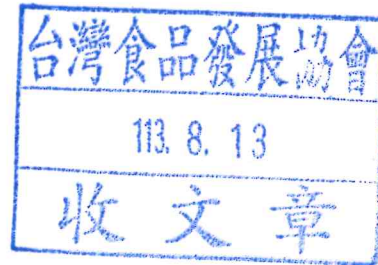 台灣食品發展協會
113. 8. 13
收文章